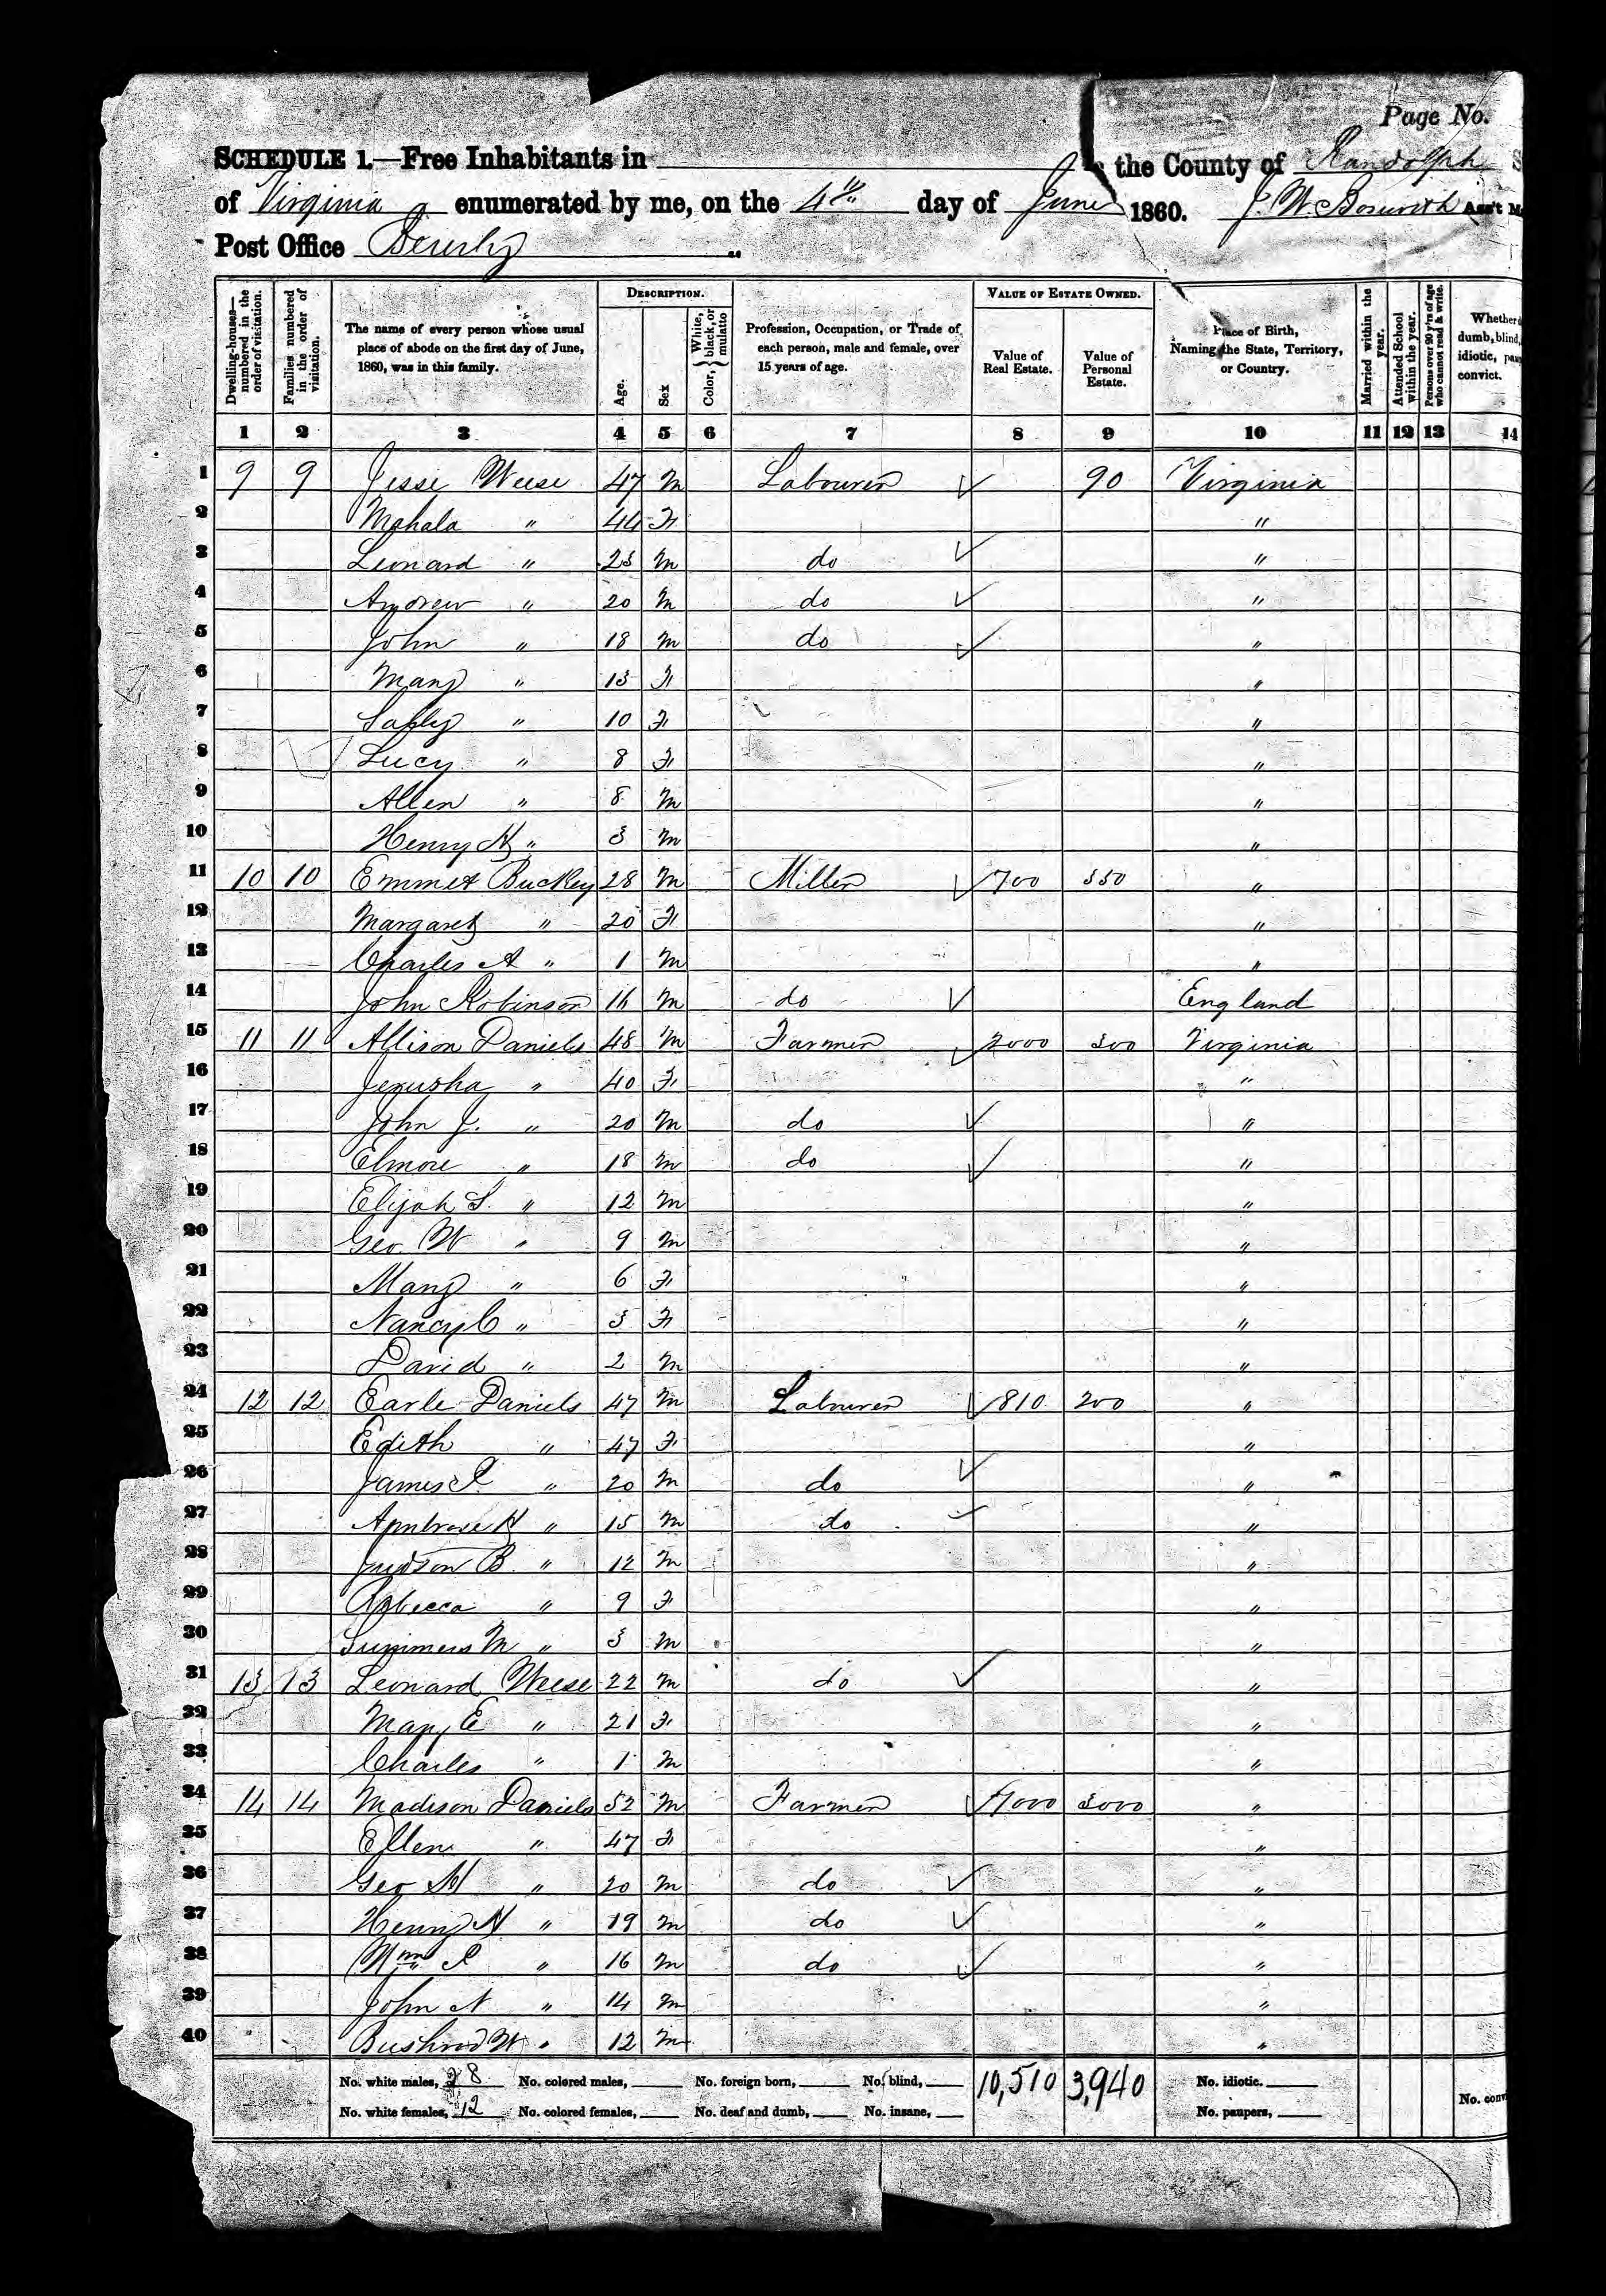 Page No.
SCHEDULE 1.—Free Inhabitants in the County of Randolph
of Virginia enumerated by me, on the 4th day of June 1860. J. W. Bosworth Ass't M
Post Office Beverly
DESCRIPTION. VALUE OF ESTATE OWNED.
Dwelling-houses—numbered in the order of visitation. Families numbered in the order of visitation. The name of every person whose usual place of abode on the first day of June, 1860, was in this family. Age. Sex Color, White, black, or mulatto Profession, Occupation, or Trade of each person, male and female, over 15 years of age. Value of Real Estate. Value of Personal Estate. Place of Birth, Naming the State, Territory, or Country. Married within the year. Attended School within the year. Persons over 20 y'rs of age who cannot read & write. Whether dumb, blind, idiotic, convict.
1 2 3 4 5 6 7 8 9 10 11 12 13 14
1 9 9 Jesse Weese 47 M Labourer 90 Virginia
2 Mahala " 44 F "
3 Leonard " 23 M do "
4 Andrew " 20 M do "
5 John " 18 M do "
6 Mary " 13 F "
7 " 10 F "
8 Lucy " 8 F "
9 Allen " 8 M "
10 Henry H " 3 M "
11 10 10 Emmet Buckey 28 M Miller 700 350 "
12 Margaret " 20 F "
13 Charles A " 1 M "
14 John Robinson 16 M do England
15 11 11 Allison Daniels 48 M Farmer 2000 300 Virginia
16 Jerusha " 40 F "
17 John J. " 20 M do "
18 Elmore " 18 M do "
19 Elijah S. " 12 M "
20 Geo. W " 9 M "
21 Mary " 6 F "
22 Nancy C " 3 F "
23 David " 2 M "
24 12 12 Earle Daniels 47 M Labourer 810 200 "
25 Edith " 47 F "
26 James " 20 M do "
27 Ambrose H " 15 M do "
28 Judson B. " 12 M "
29 Rebecca " 9 F "
30 Summers M " 3 M "
31 13 13 Leonard Weese 22 M do "
32 Mary E " 21 F "
33 Charles " 1 M "
34 14 14 Madison Daniels 52 M Farmer 7000 3000 "
35 Ellen " 47 F "
36 Geo M " 20 M do "
37 Henry H. " 19 M do "
38 Wm " 16 M do "
39 John N " 14 M "
40 Bushrod W. " 12 M "
No. white males, 28 No. colored males, No. foreign born, No. blind, 10,510 3,940 No. idiotic.
No. white females, 12 No. colored females, No. deaf and dumb, No. insane, No. paupers, No. conv